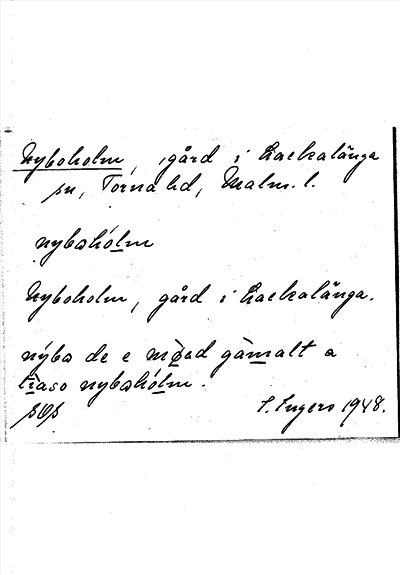 Nyboholm, gård i Hackalänga
sn, Torna hd, Malm. l.
nybahólm
Nyboholm, gård i Hackalänga.
nýba de e med gàmalt a
nybahólm.
I. Ingers 1948.